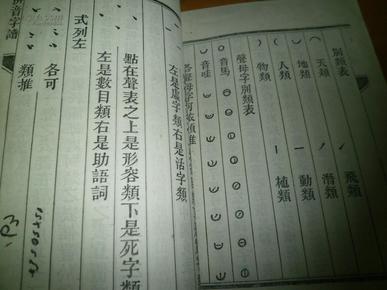 別類表
天類 飛類
地類 潛類
人類 動類
物類 植類
聲母字別類表
音馬
音哇
左是虛字類右是活字類
點在聲表之上是形容類下是死字類
左是數目類右是助語詞
式列左
各可
類推
拼音字譜